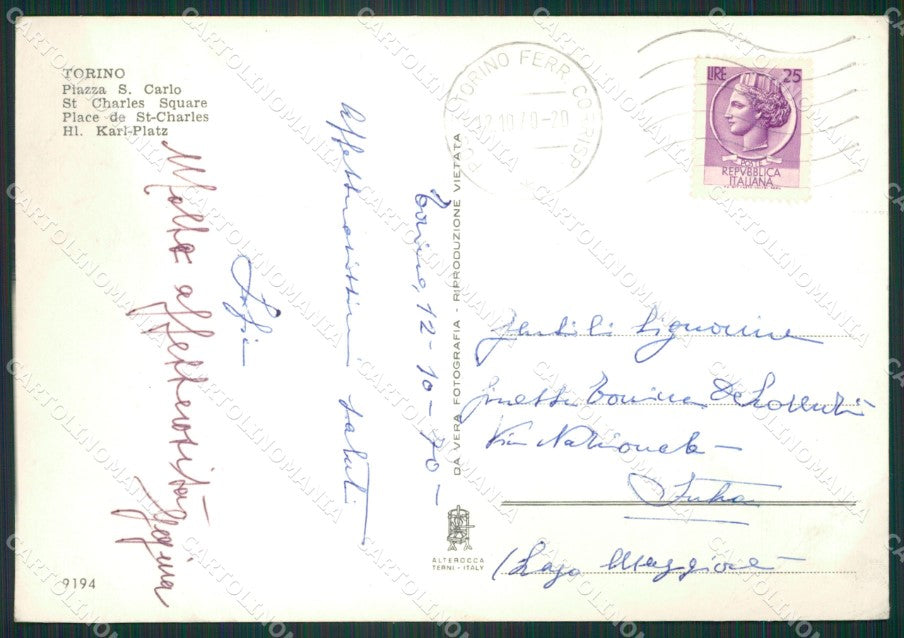 TORINO
Piazza S. Carlo
St Charles Square
Place de St-Charles
Hl. Karl-Platz
Torino, 12-10-70-
Affettuosissimi saluti
Molta affettuosità
9194
DA VERA FOTOGRAFIA - RIPRODUZIONE VIETATA
ALTEROCCA
TERNI - ITALY
TORINO FERR. CORRISP
12.10.70-20
LIRE 25
POSTE
REPVBBLICA
ITALIANA
Gentili Signorine
Ginetta Tonina De Lorenzi
Via Nazionale
Intra
(Lago Maggiore
CARTOLINOMANIA